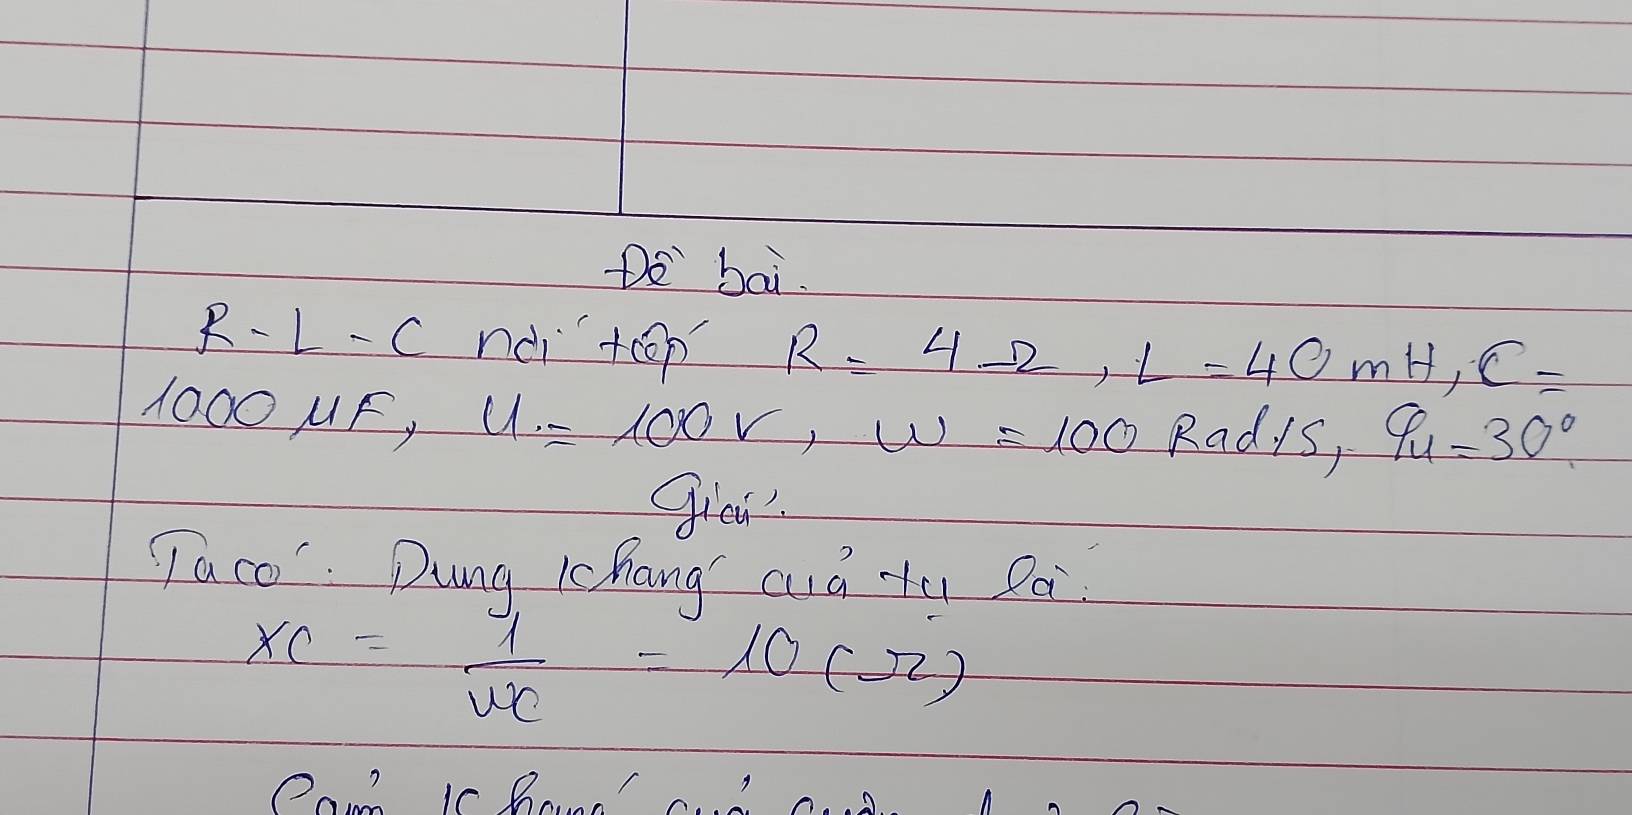 Đề bài.
R - L - C nối tiếp R = 4 Ω, L = 40 mH, C =
1000 µF, U = 100 V, W = 100 Rad/s, φu = 30°.
Giải:
Ta có: Dung kháng của tụ là:
XC = 1/WC = 10 (Ω)
Cảm kháng của cuộn